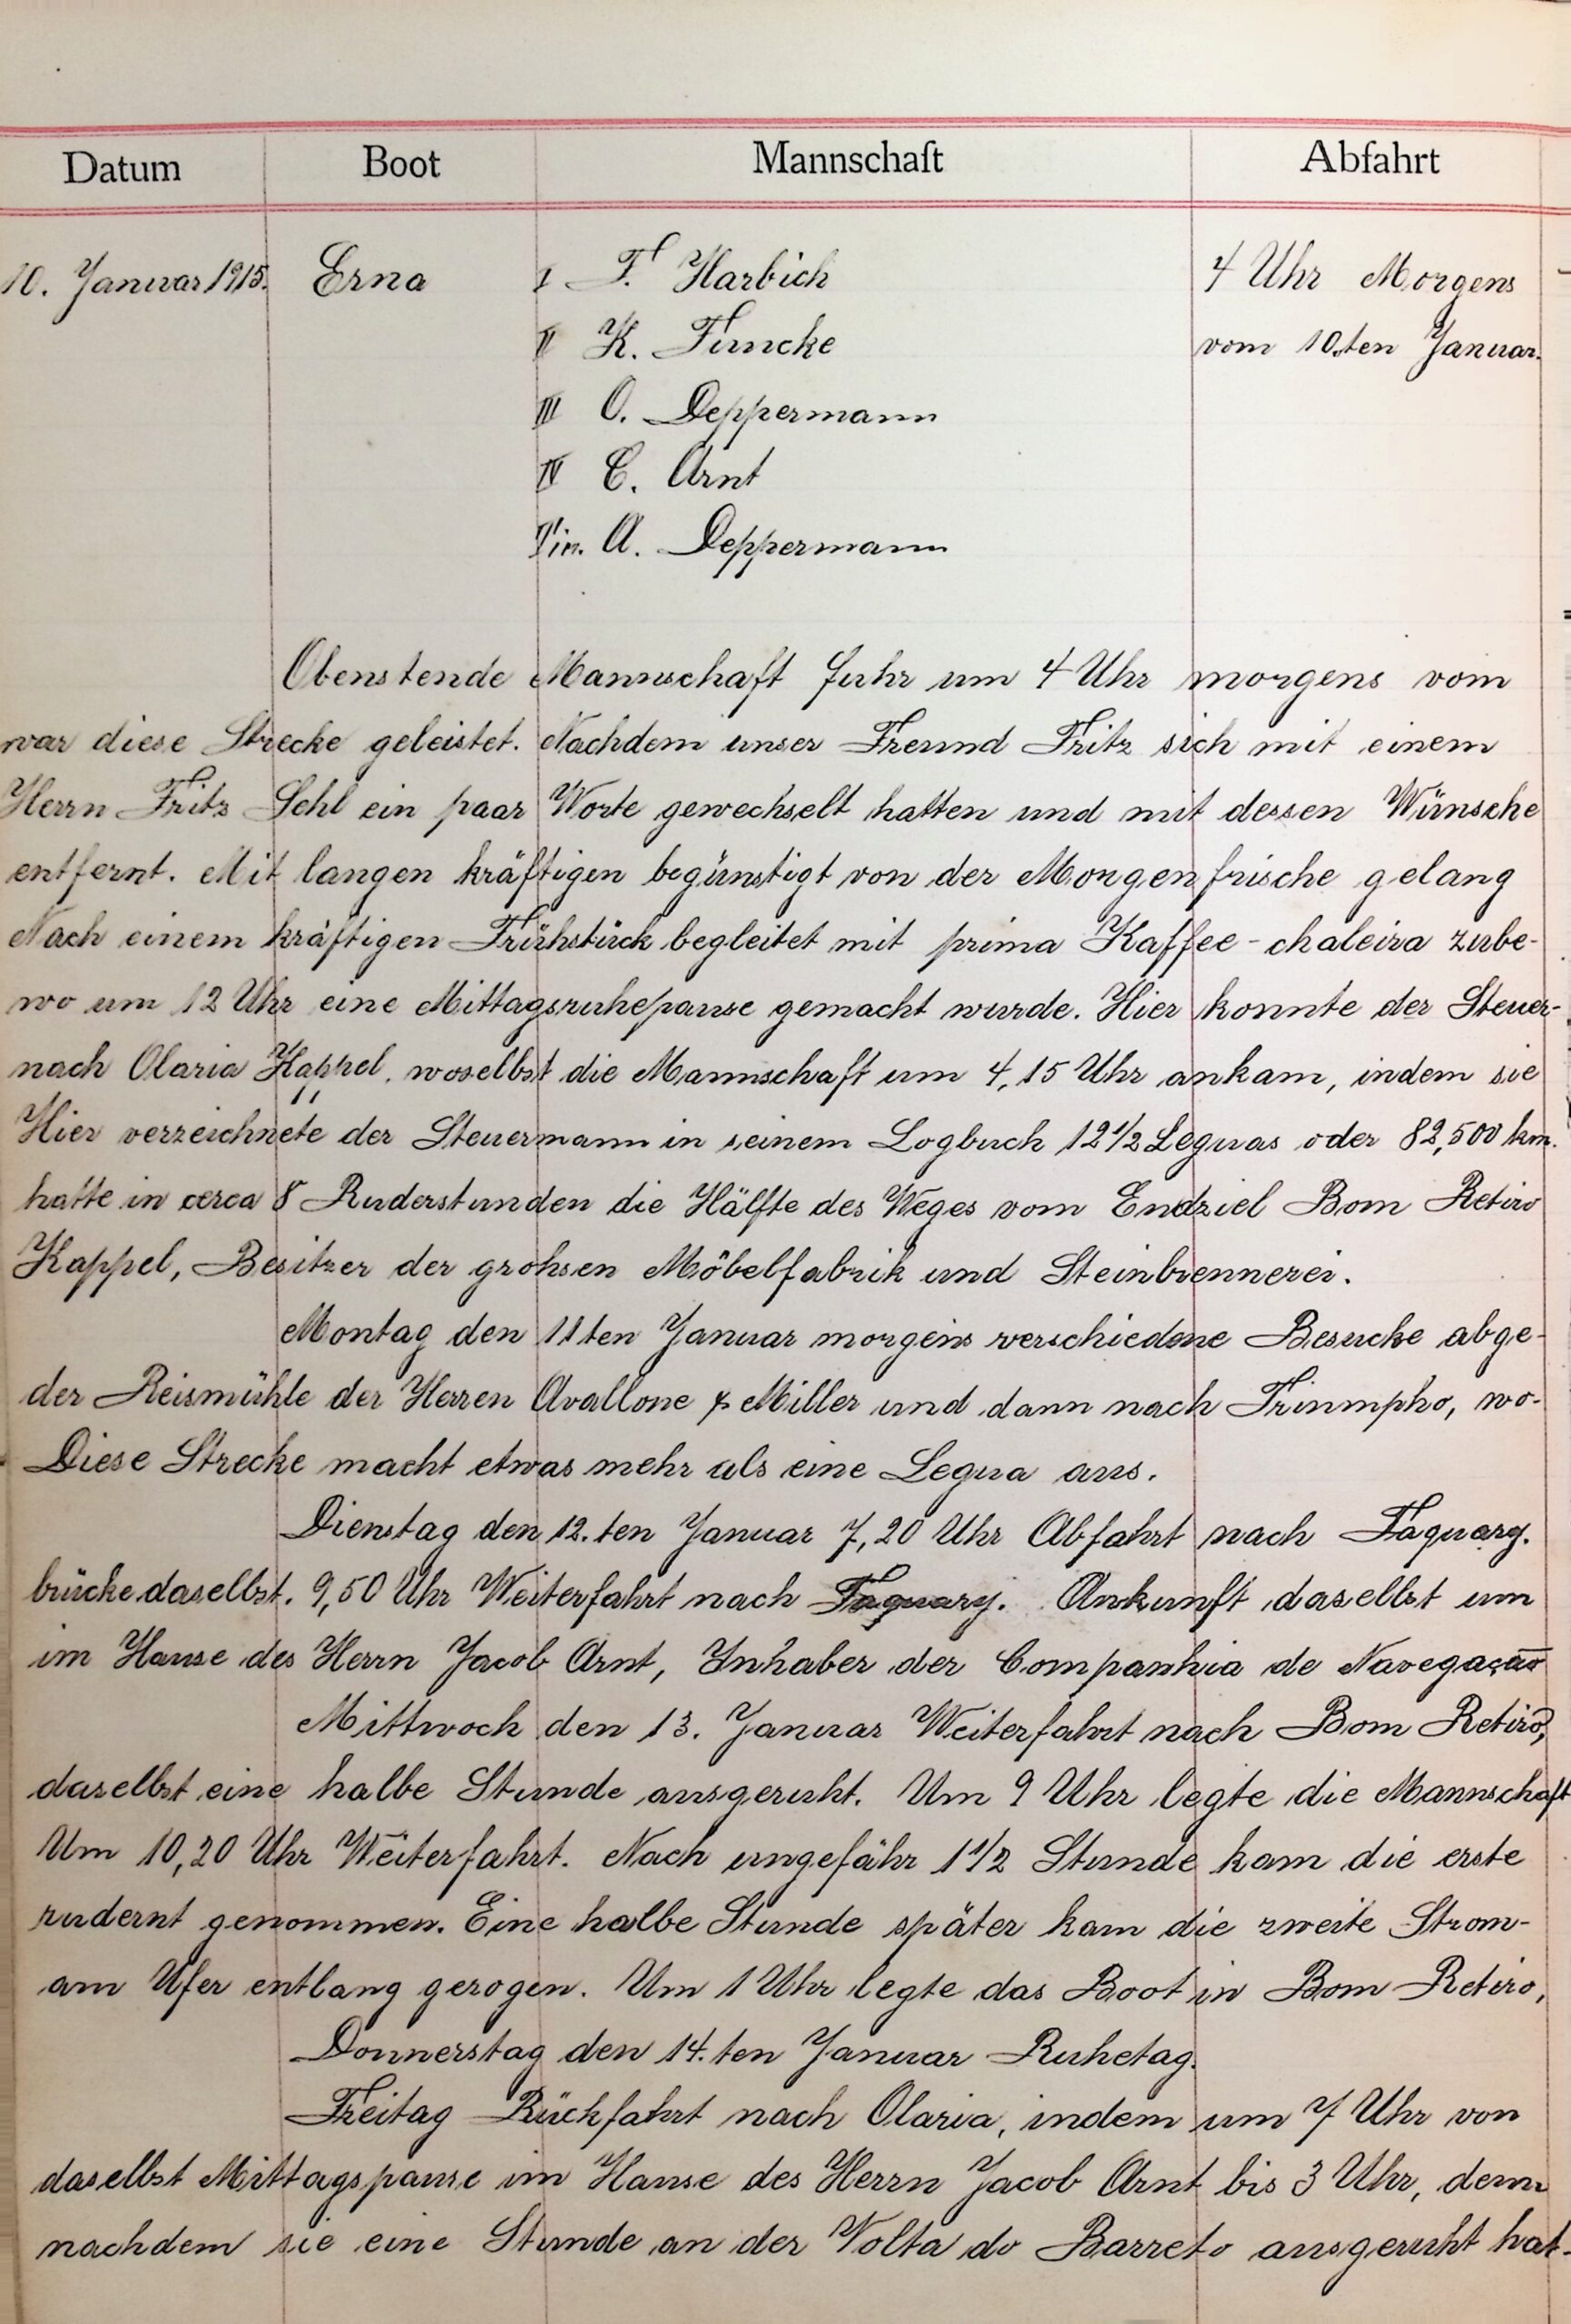 Datum Boot Mannschaft Abfahrt
10. Januar 1915. Erna I F. Harbich 4 Uhr Morgens
II K. Funcke vom 10.ten Januar.
III O. Deppermann
IV C. Arnt
A. Deppermann
Obenstende Mannschaft fuhr um 4 Uhr morgens vom
war diese Strecke geleistet. Nachdem unser Freund Fritz sich mit einem
Herrn Fritz Sehl ein paar Worte gewechselt hatten und mit dessen Wünsche
entfernt. Mit langen kräftigen begünstigt von der Morgenfrische gelang
Nach einem kräftigen Frühstück begleitet mit prima Kaffee-chaleira zube-
wo um 12 Uhr eine Mittagsruhepause gemacht wurde. Hier konnte der Steuer-
nach Olaria Kappel, woselbst die Mannschaft um 4,15 Uhr ankam, indem sie
Hier verzeichnete der Steuermann in seinem Logbuch 12 1/2 Leguas oder 82,500 km.
hatte in cerca 8 Ruderstunden die Hälfte des Weges vom Endziel Bom Retiro
Kappel, Besitzer der grohsen Möbelfabrik und Steinbrennerei.
Montag den 11ten Januar morgens verschiedene Besucke abge-
der Reismühle der Herren Avallone & Miller und dann nach Triumpho, wo-
Diese Strecke macht etwas mehr als eine Legua aus.
Dienstag den 12.ten Januar 7,20 Uhr Abfahrt nach Taquary.
brücke daselbst. 9,50 Uhr Weiterfahrt nach Taquary. Ankunft daselbst um
im Hause des Herrn Jacob Arnt, Inhaber der Companhia de Navegação
Mittwoch den 13. Januar Weiterfahrt nach Bom Retiro,
daselbst eine halbe Stunde ausgeruht. Um 9 Uhr legte die Mannschaft
Um 10,20 Uhr Weiterfahrt. Nach ungefähr 1 1/2 Stunde kam die erste
rudernt genommen. Eine halbe Stunde später kam die zweite Strom-
am Ufer entlang gezogen. Um 1 Uhr legte das Boot in Bom Retiro,
Donnerstag den 14.ten Januar Ruhetag.
Freitag Rückfahrt nach Olaria, indem um 7 Uhr von
daselbst Mittagspause im Hause des Herrn Jacob Arnt bis 3 Uhr, dem
nachdem sie eine Stunde an der Volta do Barreto ausgeruht hat-